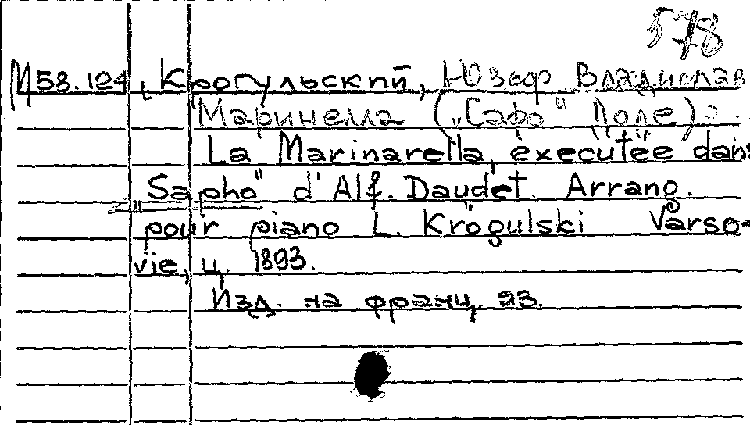 578
М58.124 Крогульский, Юзеф Владислав
Маринелла („Сафо" Доле) =
La Marinarella, éxecutée dans
„Sapho" d'Alf. Daudet. Arrang.
pour piano L. Krogulski Varso-
vie, ц. 1893.
Изд. на франц. яз.